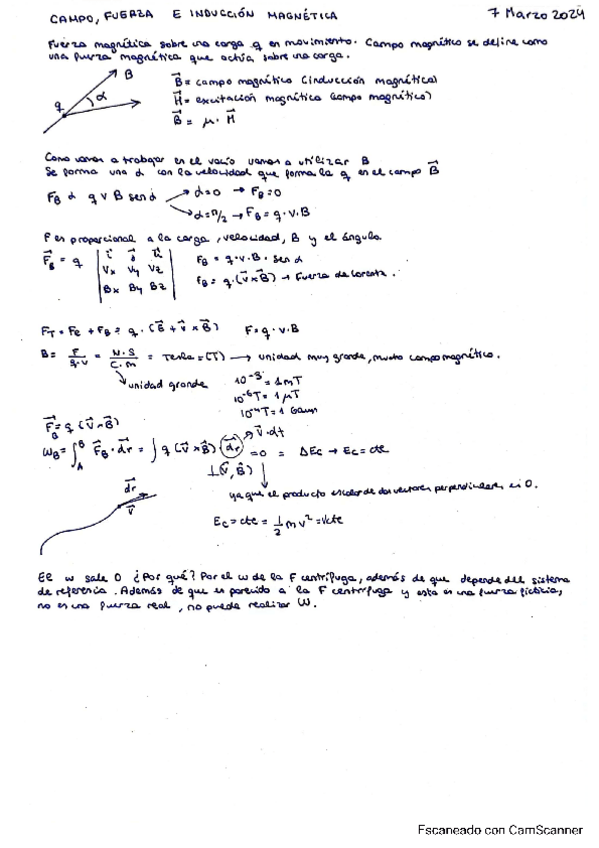 CAMPO, FUERZA E INDUCCIÓN MAGNÉTICA 7 Marzo 2024
Fuerza magnética sobre una carga q en movimiento. Campo magnético se define como
una fuerza magnética que actúa sobre una carga.
B
q α
B⃗ = campo magnético (inducción magnética)
H⃗ = excitación magnética (campo magnético)
B⃗ = μ · H⃗
Como vamos a trabajar en el vacío vamos a utilizar B
Se forma una α con la velocidad que forma la q en el campo B⃗
F_B α q v B senα → α=0 → F_B=0
→ α=π/2 → F_B = q·v·B
F es proporcional a la carga, velocidad, B y el ángulo
F⃗_B = q | i⃗ j⃗ k⃗ | F_B = q·v·B·sen α
| Vx Vy Vz |
| Bx By Bz | F_B = q·(v⃗×B⃗) → Fuerza de Lorentz.
F_T = Fe + F_B = q·(E⃗ + v⃗ × B⃗) F = q·v·B
B = F/q·v = N·S/C·m = Tesla = (T) → unidad muy grande, mucho campo magnético.
unidad grande 10⁻³ = 1mT
10⁻⁶T = 1μT
10⁻⁴T = 1 Gauss
F⃗_B = q (v⃗×B⃗) v⃗·dt
W_B = ∫_A^B F⃗_B · dr⃗ = ∫ q (v⃗×B⃗) dr⃗ = 0 = ΔEc → Ec = cte
⊥(v⃗, B⃗)
ya que el producto escalar de dos vectores perpendiculares es 0.
dr⃗
v⃗
Ec = cte = 1/2 m v² = Vcte
El w sale 0 ¿Por qué? Por el w de la F centrífuga, además de que depende del sistema
de referencia. Además de que es parecido a la F centrífuga y esta es una fuerza ficticia,
no es una fuerza real, no puede realizar W.
Escaneado con CamScanner